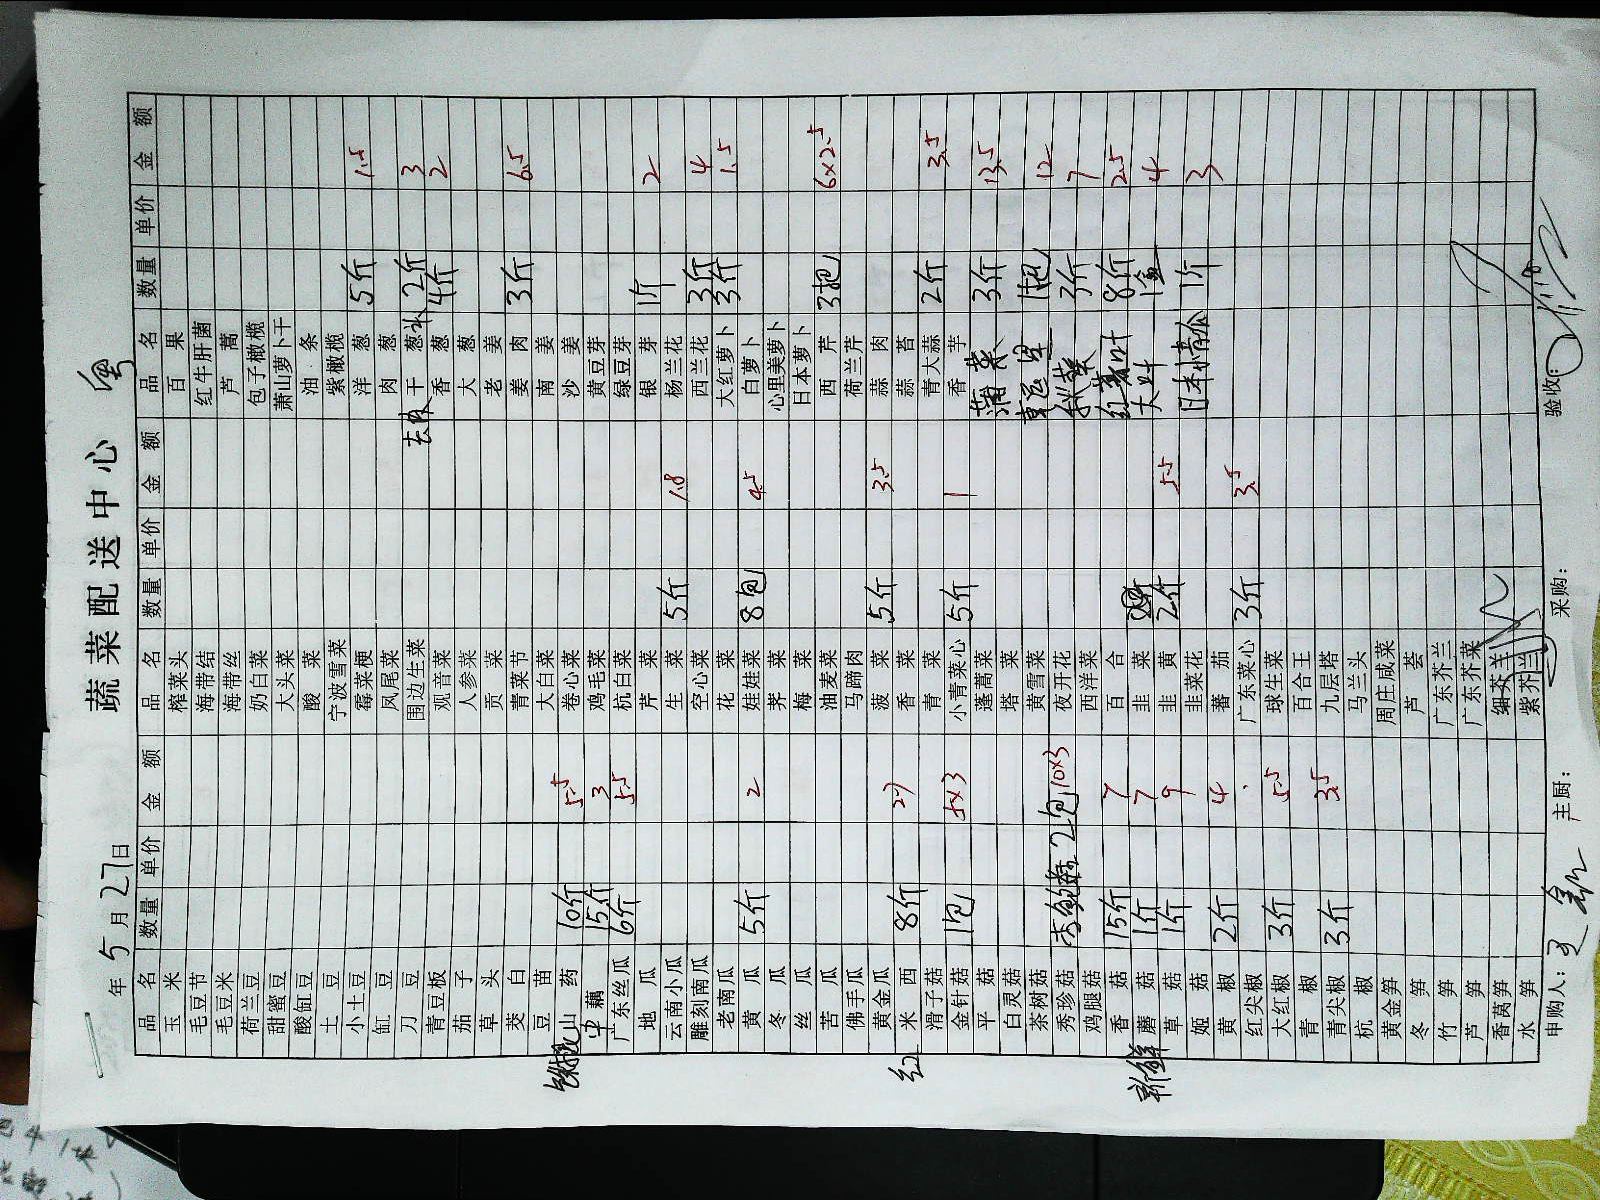 蔬菜配送中心 粤
年 5月27日
品名 数量 单价 金额 品名 数量 单价 金额 品名 数量 单价 金额
玉米 榨菜头 百果
毛豆节 海带结 红牛肝菌
毛豆米 海带丝 芦蒿
荷兰豆 奶白菜 包子橄榄
甜蜜豆 大头菜 萧山萝卜干
酸缸豆 酸菜 油条
土豆 宁波雪菜 紫橄榄
小土豆 霉菜梗 洋葱 5斤 1.5
缸豆 凤尾菜 肉葱
刀豆 围边生菜 去皮 干葱 2斤 3
青豆板 观音菜 香葱 4斤 2
茄子 人参菜 大葱
草头 贡菜 老姜
茭白 青菜节 姜肉 3斤 6.5
豆苗 大白菜 南姜
铁棍山药 10斤 5.5 卷心菜 沙姜
藕 15斤 3 鸡毛菜 黄豆芽
广东丝瓜 6斤 5.5 杭白菜 绿豆芽
地瓜 芹菜 银芽 1斤 2
云南小瓜 生菜 5斤 1.8 杨兰花
雕刻南瓜 空心菜 西兰花 3斤 4
老南瓜 花菜 大红萝卜 3斤 1.5
黄瓜 5斤 2 娃娃菜 8包 4.5 白萝卜
冬瓜 荠菜 心里美萝卜
丝瓜 梅菜 日本萝卜
苦瓜 油麦菜 西芹 3把 6x2.5
佛手瓜 马蹄肉 荷兰芹
黄金瓜 菠菜 5斤 3.5 蒜肉
红 米西 8斤 香菜 蒜苔
滑子菇 青菜 青大蒜 2斤 3.5
金针菇 1包 5x3 小青菜心 5斤 1 香芋
平菇 蓬蒿菜 蒲菜 3斤 13.5
白灵菇 塔菜
茶树菇 黄雪菜 1包 12
秀珍菇 杏鲍菇 2包 10x3 夜开花
鸡腿菇 西洋菜 秋葵 3斤 7
香菇 15斤 7 百合 红薯叶 8斤 2.5
新鲜 蘑菇 1斤 7 韭菜 大叶 1盒 4
草菇 1斤 9 韭黄 2斤 5.5
姬菇 韭菜花 日本青瓜 1斤 3
黄椒 2斤 4 蕃茄
红尖椒 广东菜心 3斤 3.5
大红椒 3斤 5.5 球生菜
青椒 百合王
青尖椒 3斤 3.5 九层塔
杭椒 马兰头
黄金笋 周庄咸菜
冬笋 芦荟
竹笋 广东芥兰
芦笋 广东芥菜
香莴笋 细芥兰
水笋 紫芥兰
申购人: 主厨: 采购: 验收: